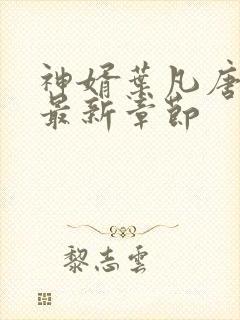 神婿葉凡唐
最新章節
黎志雲